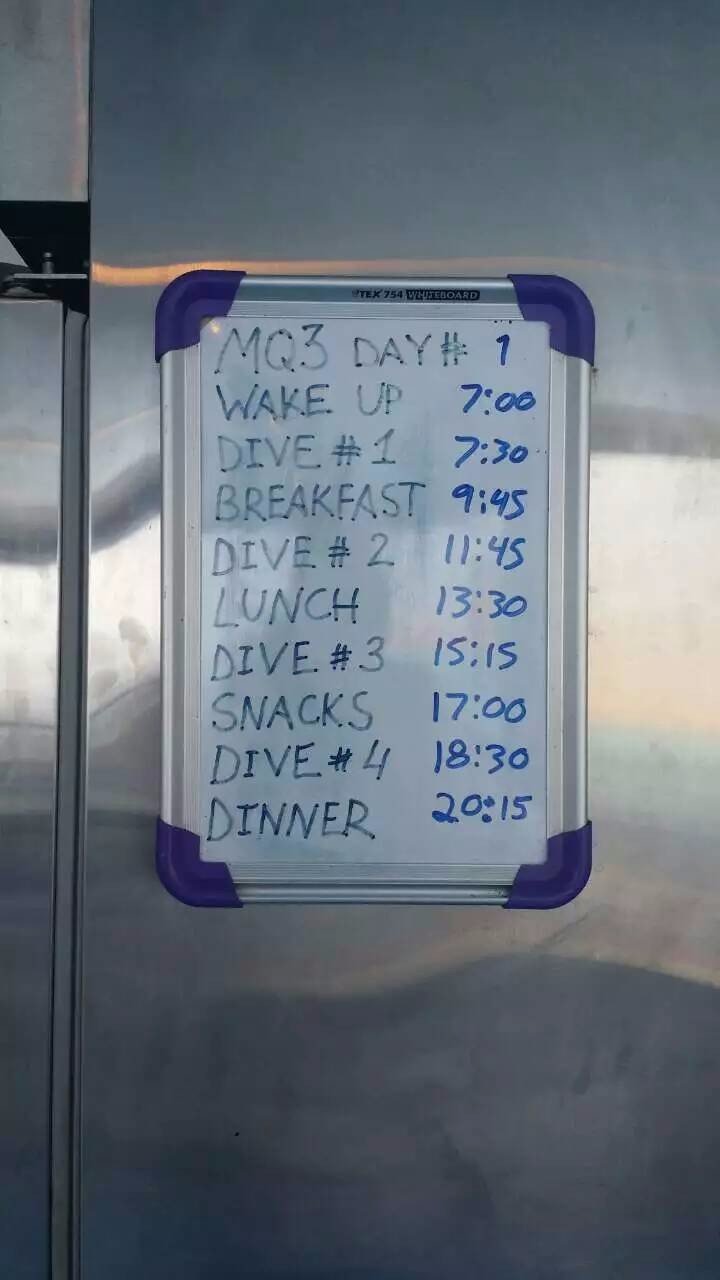 TEX 754 WHITEBOARD
MQ3 DAY# 1
WAKE UP 7:00
DIVE #1 7:30
BREAKFAST 9:45
DIVE # 2 11:45
LUNCH 13:30
DIVE #3 15:15
SNACKS 17:00
DIVE #4 18:30
DINNER 20:15